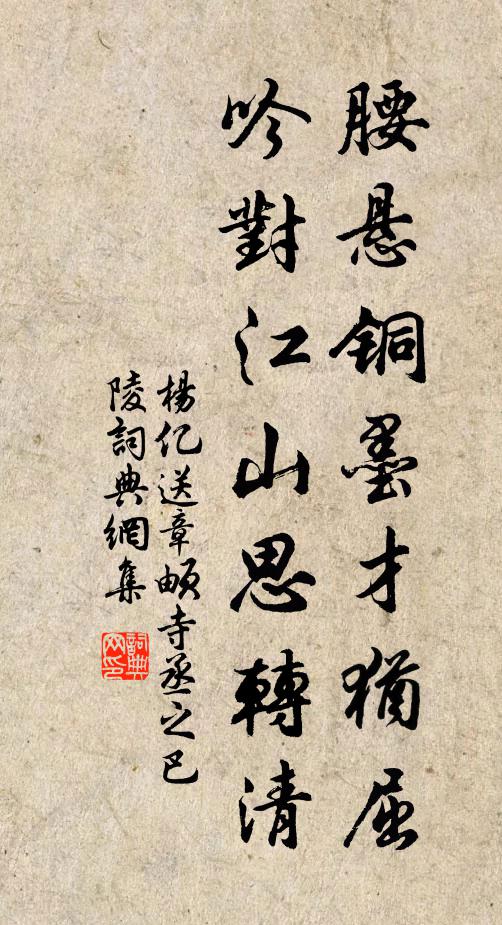 腰悬铜墨才犹屈
吟對江山思轉清
楊亿送章頔寺丞之巴
陵詞典網集
詞典网印